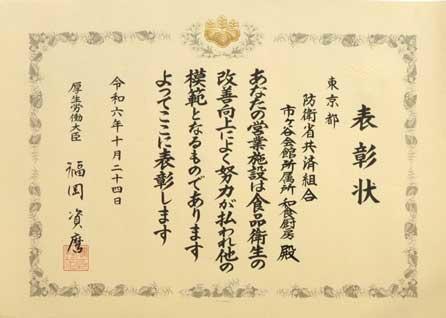 表彰状
東京都
防衛省共済組合
市ヶ谷会館所属所 和食厨房 殿
あなたの営業施設は食品衛生の
改善向上によく努力が払われ他の
模範となるものであります
よってここに表彰します
令和六年十月二十四日
厚生労働大臣
福岡資麿